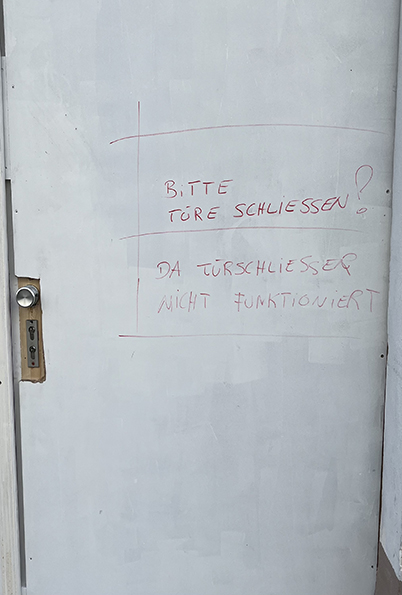 BITTE
TÜRE SCHLIESSEN!
DA TÜRSCHLIESSER
NICHT FUNKTIONIERT